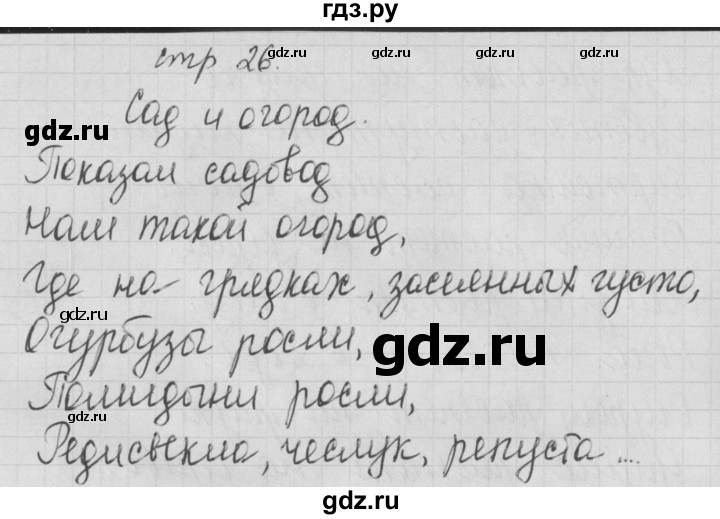 гдз.ру
стр 26.
gdz.ru gdz.ru gdz.ru
Сад и огород.
gdz.ru
Показал садовод
gdz.ru gdz.ru
Нам такой огород,
Где на грядках, заселенных густо,
gdz.ru gdz.ru
Огурбузы росли,
gdz.ru
Помидыни росли,
gdz.ru gdz.ru gdz.ru
Редисвекла, чеслук, репуста...
gdz.ru